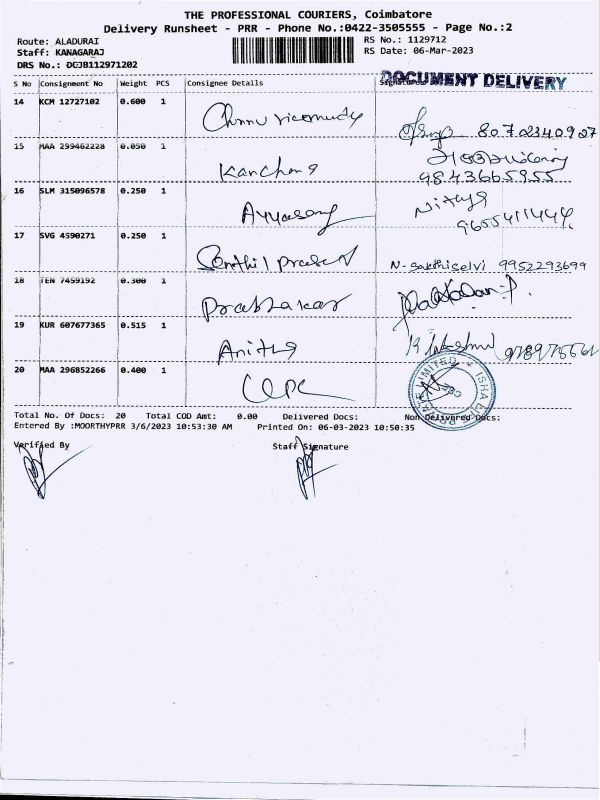 THE PROFESSIONAL COURIERS, Coimbatore
Delivery Runsheet - PRR - Phone No.:0422-3505555 - Page No.:2
Route: ALADURAI
RS No.: 1129712
Staff: KANAGARAJ
RS Date: 06-Mar-2023
DRS No.: DCJB112971202
DOCUMENT DELIVERY
S No Consignment No Weight PCS Consignee Details
14 KCM 12727102 0.600 1
8072340927
15 MAA 299462228 0.050 1 Kanchana
9843665955
16 SLM 315096578 0.250 1 Ayyasamy Nithya
9655411444
17 SVG 4590271 0.250 1 Senthil prasad N. Sakthiselvi 9952293699
18 TEN 7459192 0.300 1 Prabhakar
19 KUR 607677365 0.515 1 Anitha
20 MAA 296852266 0.400 1
Total No. Of Docs: 20 Total COD Amt: 0.00 Delivered Docs: Non Delivered Docs:
Entered By :MOORTHYPRR 3/6/2023 10:53:30 AM Printed On: 06-03-2023 10:50:35
Verified By Staff Signature